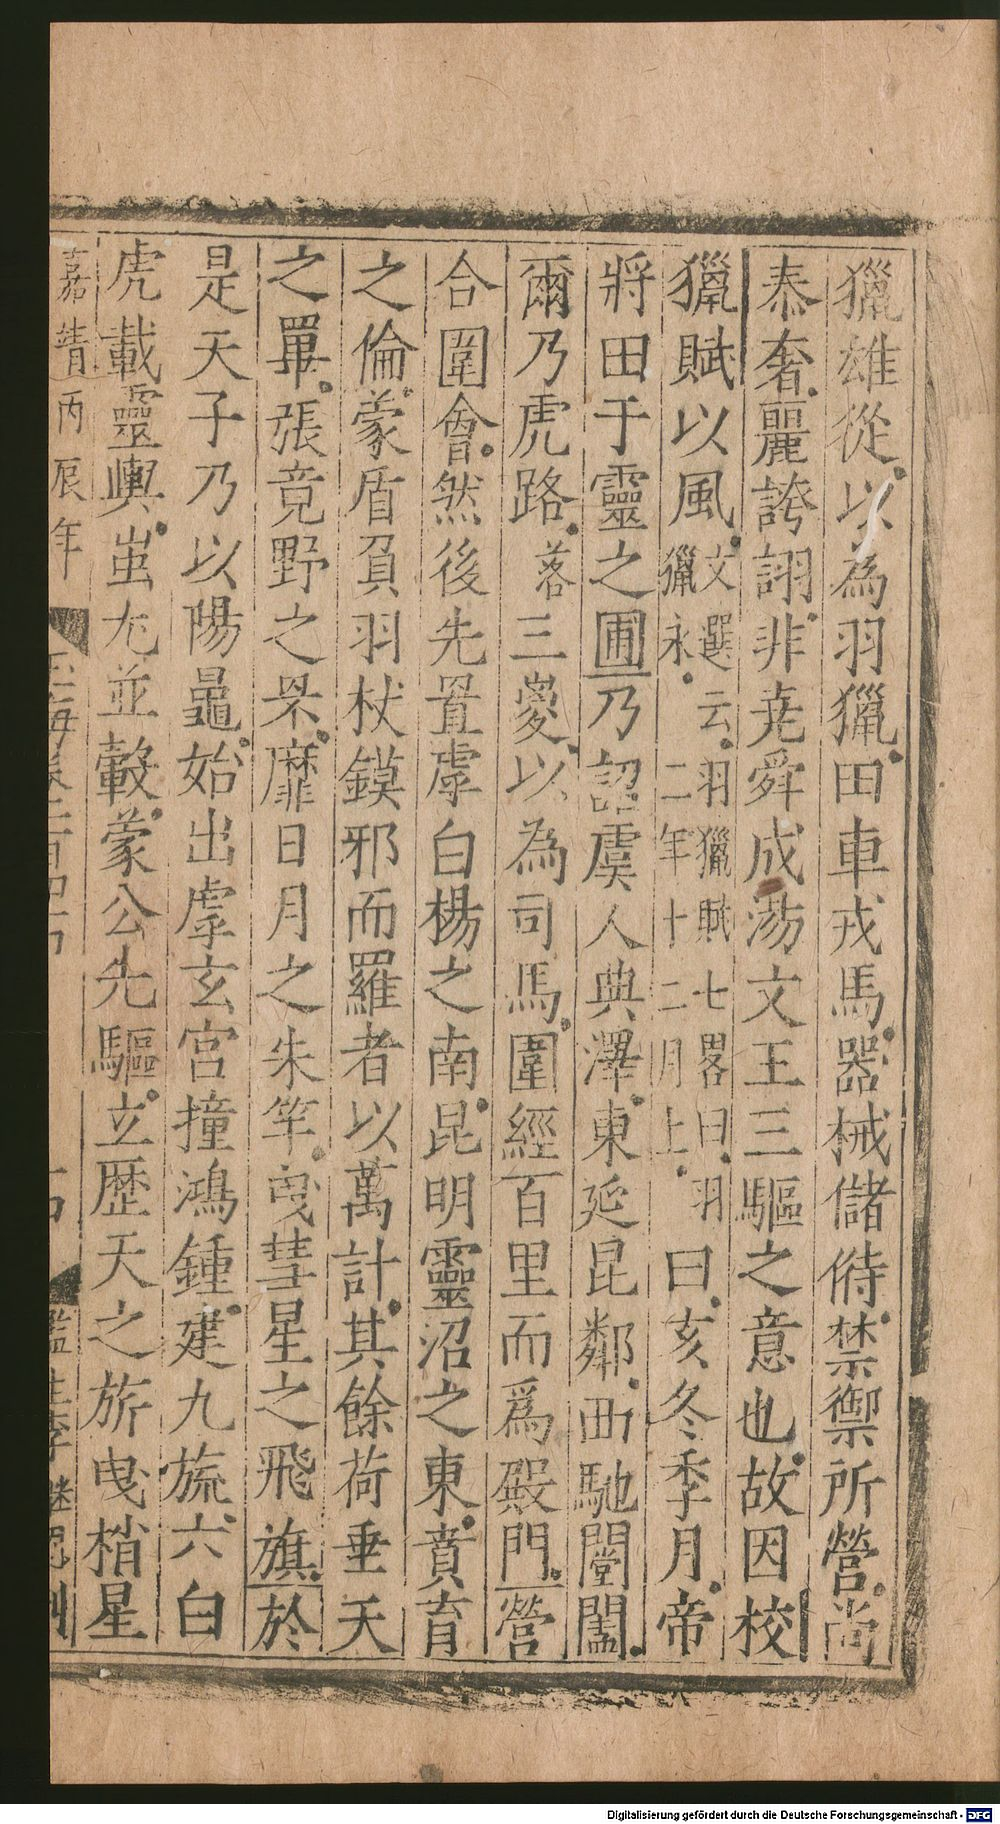 獵雄從以為羽獵田車戎馬器械儲偫禁禦所營尚
泰奢麗誇詡非尭舜成湯文王三驅之意也故因校
獵賦以風文選云羽獵賦七畧曰羽
獵永二年十二月上曰亥冬季月帝
將田于靈之囿乃詔虞人典澤東延昆鄰西馳閶闔
爾乃虎路落三嵏以為司馬圍經百里而爲殿門營
合圍會然後先置虖白楊之南昆明靈沼之東賁育
之倫蒙盾負羽杖鏌邪而羅者以萬計其餘荷垂天
之畢張竟野之罘靡日月之朱竿曳彗星之飛旗於
是天子乃以陽鼂始出虖玄宮撞鴻鍾建九旒六白
虎載靈輿蚩尤並轂蒙公先驅立歷天之旂曳梢星
嘉靖丙辰年
監生李
刊
Digitalisierung gefördert durch die Deutsche Forschungsgemeinschaft - DFG